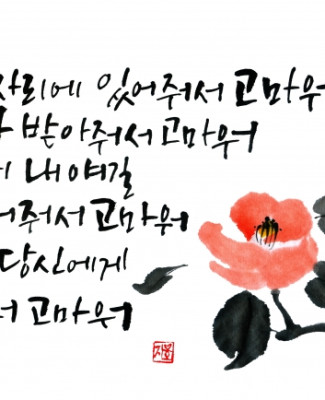 자리에 있어줘서 고마워
받아줘서 고마워
내 얘길
줘서 고마워
당신에게
고마워